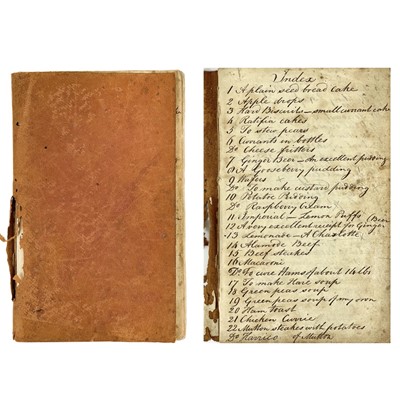 Index
1 A plain seed bread cake
2 Apple drops
3 Hard Biscuits - small currant cakes
4 Ratifia cakes
5 To stew pears
6 Currants in bottles
Do Cheese fritters
7 Ginger Beer - An excellent pudding
8 A Gooseberry pudding
9
Do To make custard pudding
10 Potatoe Pudding
Do Raspberry Cream
11 Imperial - Lemon Puffs
12 A very excellent receipt for Ginger (Beer
13 Lemonade - A Charlotte
14 Alamode Beef
15 Beef steakes
16 Macaroni
Do To cure Hams of about 14 lbs
17 To make Hare soup
18 Green peas soup
19 Green peas soup of my own
20 Ham toast
21 Chicken Currie
22 Mutton steakes with potatoes
Do Harrico of Mutton